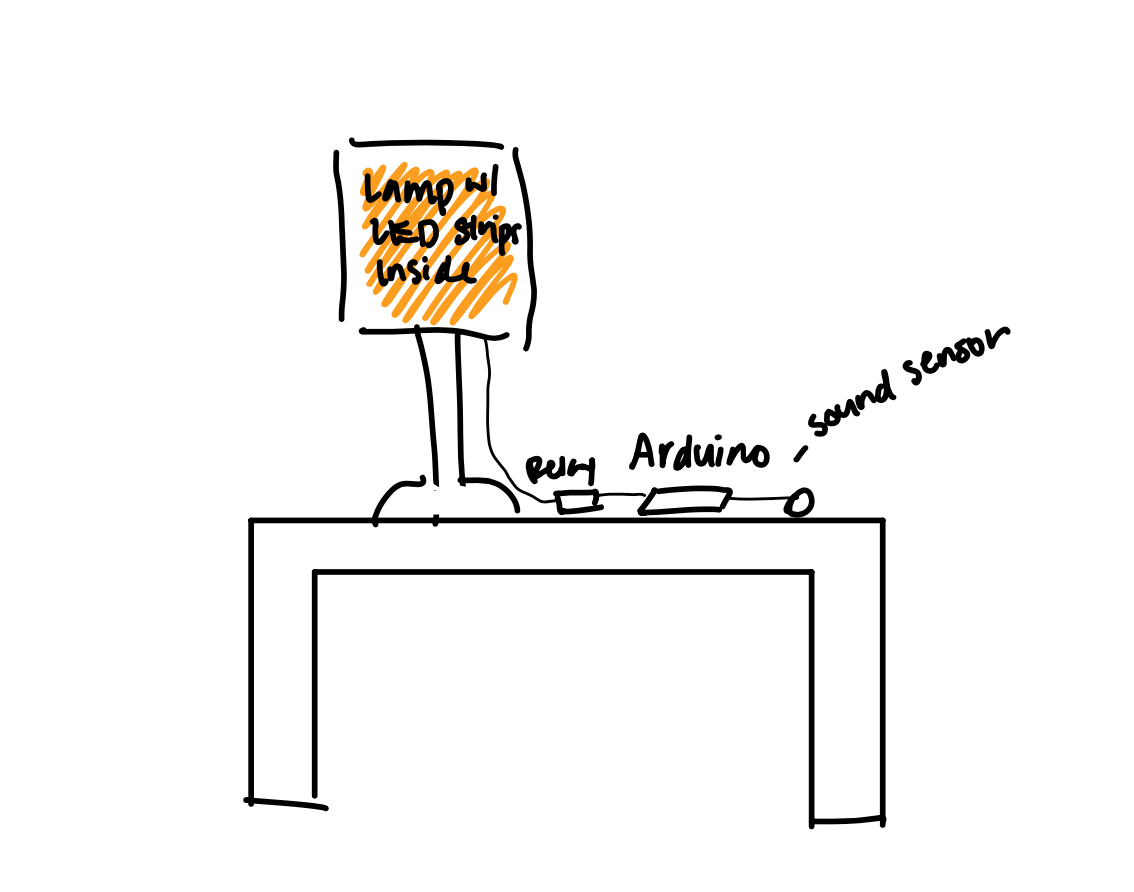 Lamp w/
LED strips
inside
Relay
Arduino
sound sensor